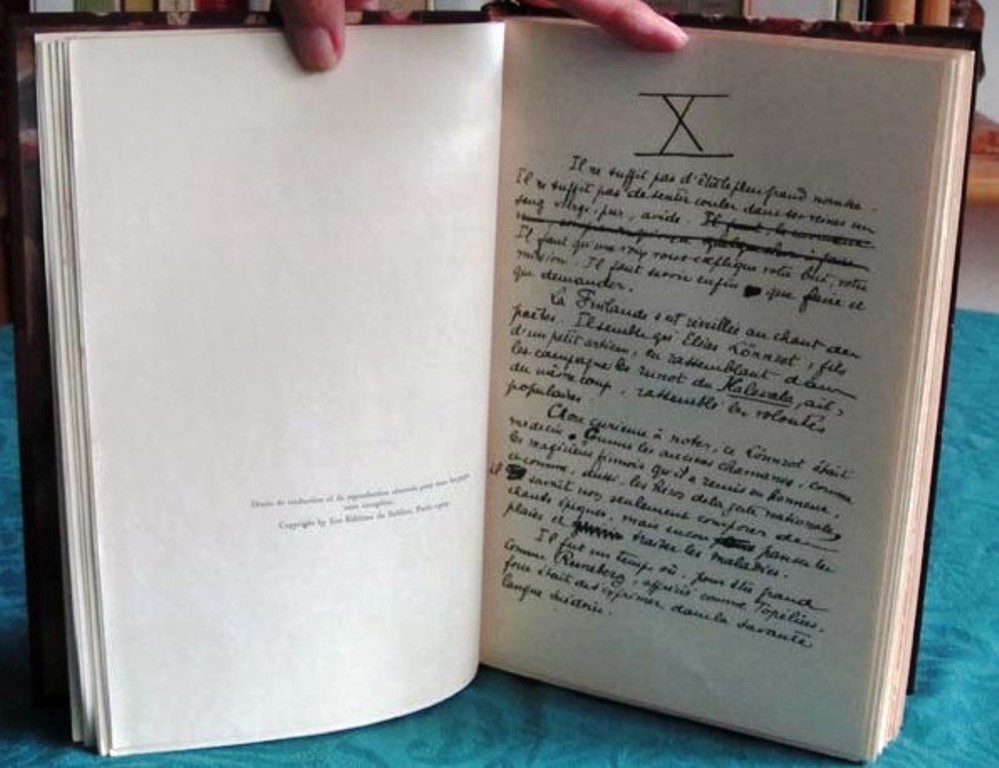 Droits de traduction et de reproduction réservés pour tous les pays
Copyright by Les Éditions de Paris
X
Il ne suffit pas d'être le plus grand nombre.
Il ne suffit pas de sentir couler dans ses veines un
sang vierge, pur, avide. Il faut
quelque chose à faire
Il faut qu'une voix vous explique votre but, votre
mission. Il faut savoir enfin que faire et
que demander.
La Finlande s'est réveillée au chant des
poètes. Il semble qu'Elias Lönnrot, fils
d'un petit artisan, en rassemblant dans
les campagnes les runot du Kalevala, ait,
du même coup, rassemblé les volontés
populaires.
Chose curieuse à noter, ce Lönnrot était
médecin. Comme les anciens chamanes, comme
les magiciens finnois qu'il a remis en honneur,
et comme, aussi, les héros de la geste nationale,
il savait non seulement composer des
chants épiques, mais encore panser les
plaies et traiter les maladies.
Il fut un temps où, pour être grand
comme Runeberg, apprécié comme Topelius,
force était de s'exprimer dans la savante
langue suédoise.